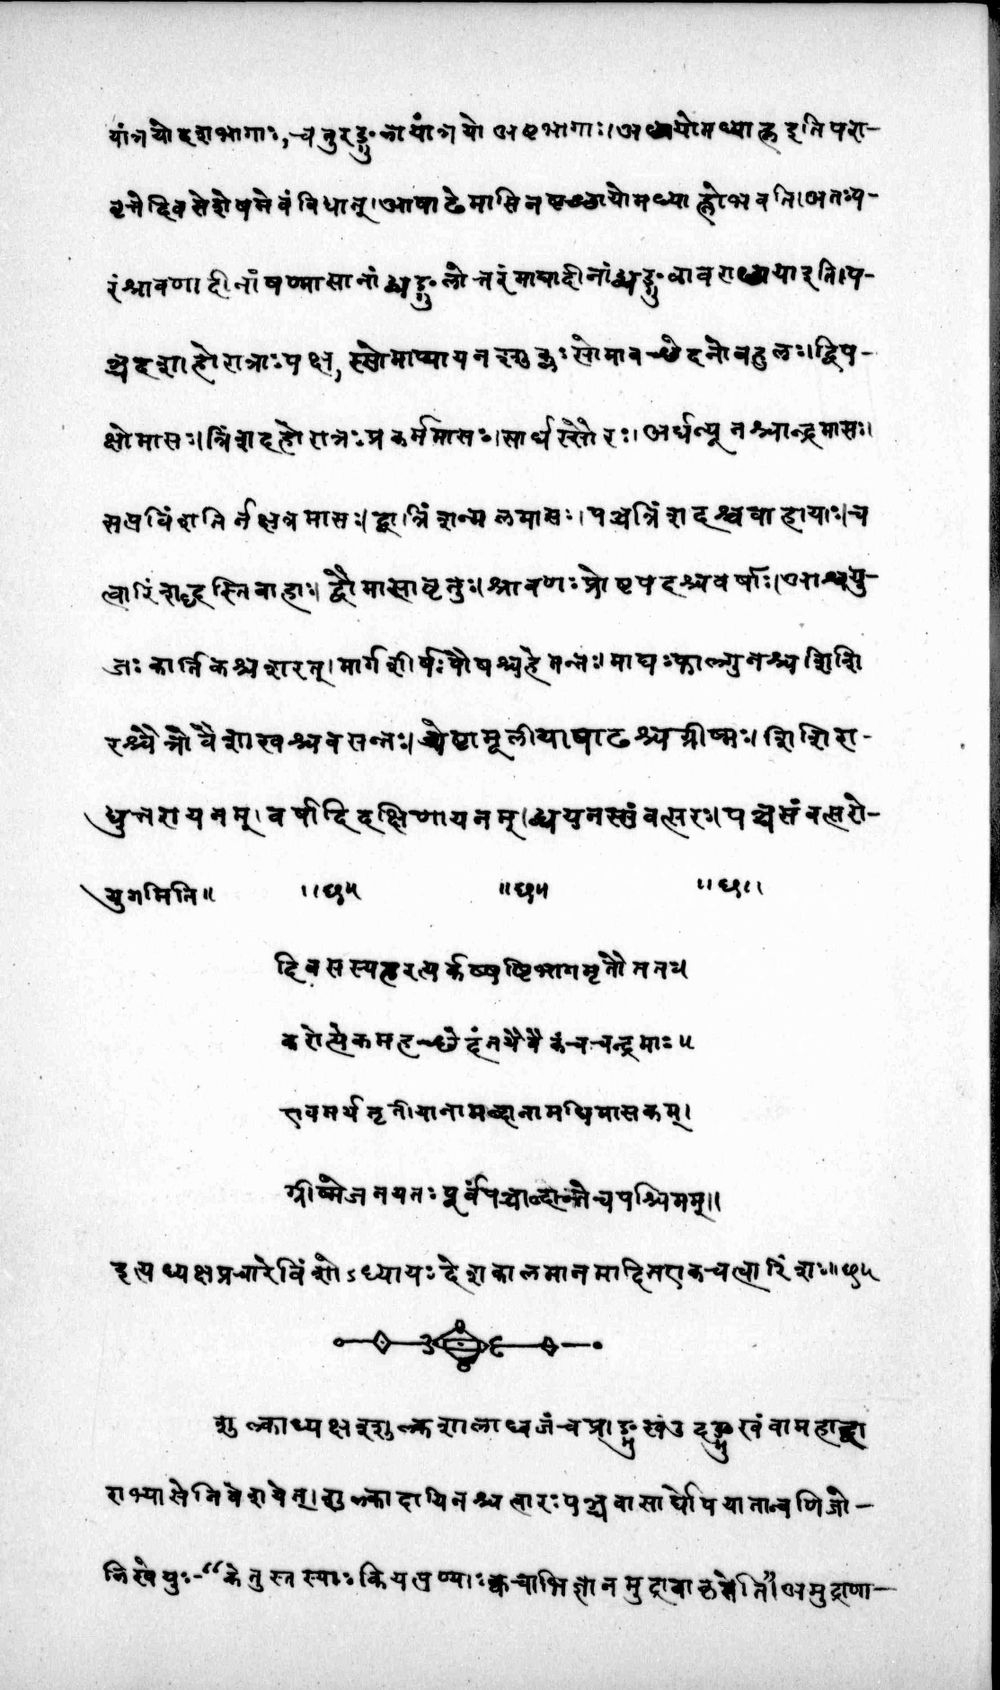 यांत्रयोदशभागाः, चतुरङ्गुलायांत्रयो अष्टभागाः।अच्छायोमध्याह्न इति।परा-
वृत्तेदिवसेशेषमेवंविधात्।आषाढेमासिनष्टच्छायोमध्याह्नोभवति।अतःप-
रंश्रावणादीनांषण्मासानांद्व्यङ्गुलोत्तरंमाघादीनांद्व्यङ्गुलावराछायाइति।प-
ञ्चदशाहोरात्राःपक्ष, स्सोमाप्यायनश्शुक्लःसोमावच्छेदनोबहुलः।द्विप-
क्षोमासः।त्रिंशदहोरात्रःप्रकर्ममासः।सार्धस्सौरः।अर्धन्यूनश्चान्द्रमासः।
सप्तविंशतिर्नक्षत्रमासः।द्वात्रिंशन्मलमासः।पञ्चत्रिंशदश्ववाहायाः।च
त्वारिंशद्धस्तिवाहाः।द्वौमासावृतुः।श्रावणःप्रोष्टपदश्चवर्षाः।आश्वयु-
जःकार्तिकश्चशरत्।मार्गशीर्षःपौषश्चहेमन्तः।माघःफाल्गुनश्चशिशि
रश्चैत्रोवैशाखश्चवसन्तः।ज्येष्टामूलीयाषाढश्चग्रीष्मः।शिशिरा-
द्युत्तरायनम्।वर्षादिदक्षिणायनम्।द्व्ययनस्संवत्सरः।पञ्चसंवत्सरो-
युगमिति॥ ॥छ॥ ॥छ॥ ॥छ॥
दिवसस्यहरत्यर्कष्षष्टिभागमृतौततः।
करोत्येकमहश्छेदंतथैवैकंचचन्द्रमाः॥
एवमर्धतृतीयानामब्दानामधिमासकम्।
ग्रीष्मेजनयतःपूर्वंपञ्चाब्दान्तेचपश्चिमम्॥
इत्यध्यक्षप्रचारेविंशोऽध्यायःदेशकालमानमादितएकचत्वारिंशः॥छ॥
शुल्काध्यक्षश्शुल्कशालाध्वजंचप्राङ्मुखंउदङ्मुखंवामहाद्वा
राभ्याशेनिवेशयेत्।शुल्कादायिनश्चत्वारःपञ्चवासार्थोपयातान्वणिजो-
लिखेयुः-"केकुतस्त्याःकियत्पण्याःक्वचाभिज्ञानमुद्रावाकृतेति"।अमुद्राणा-